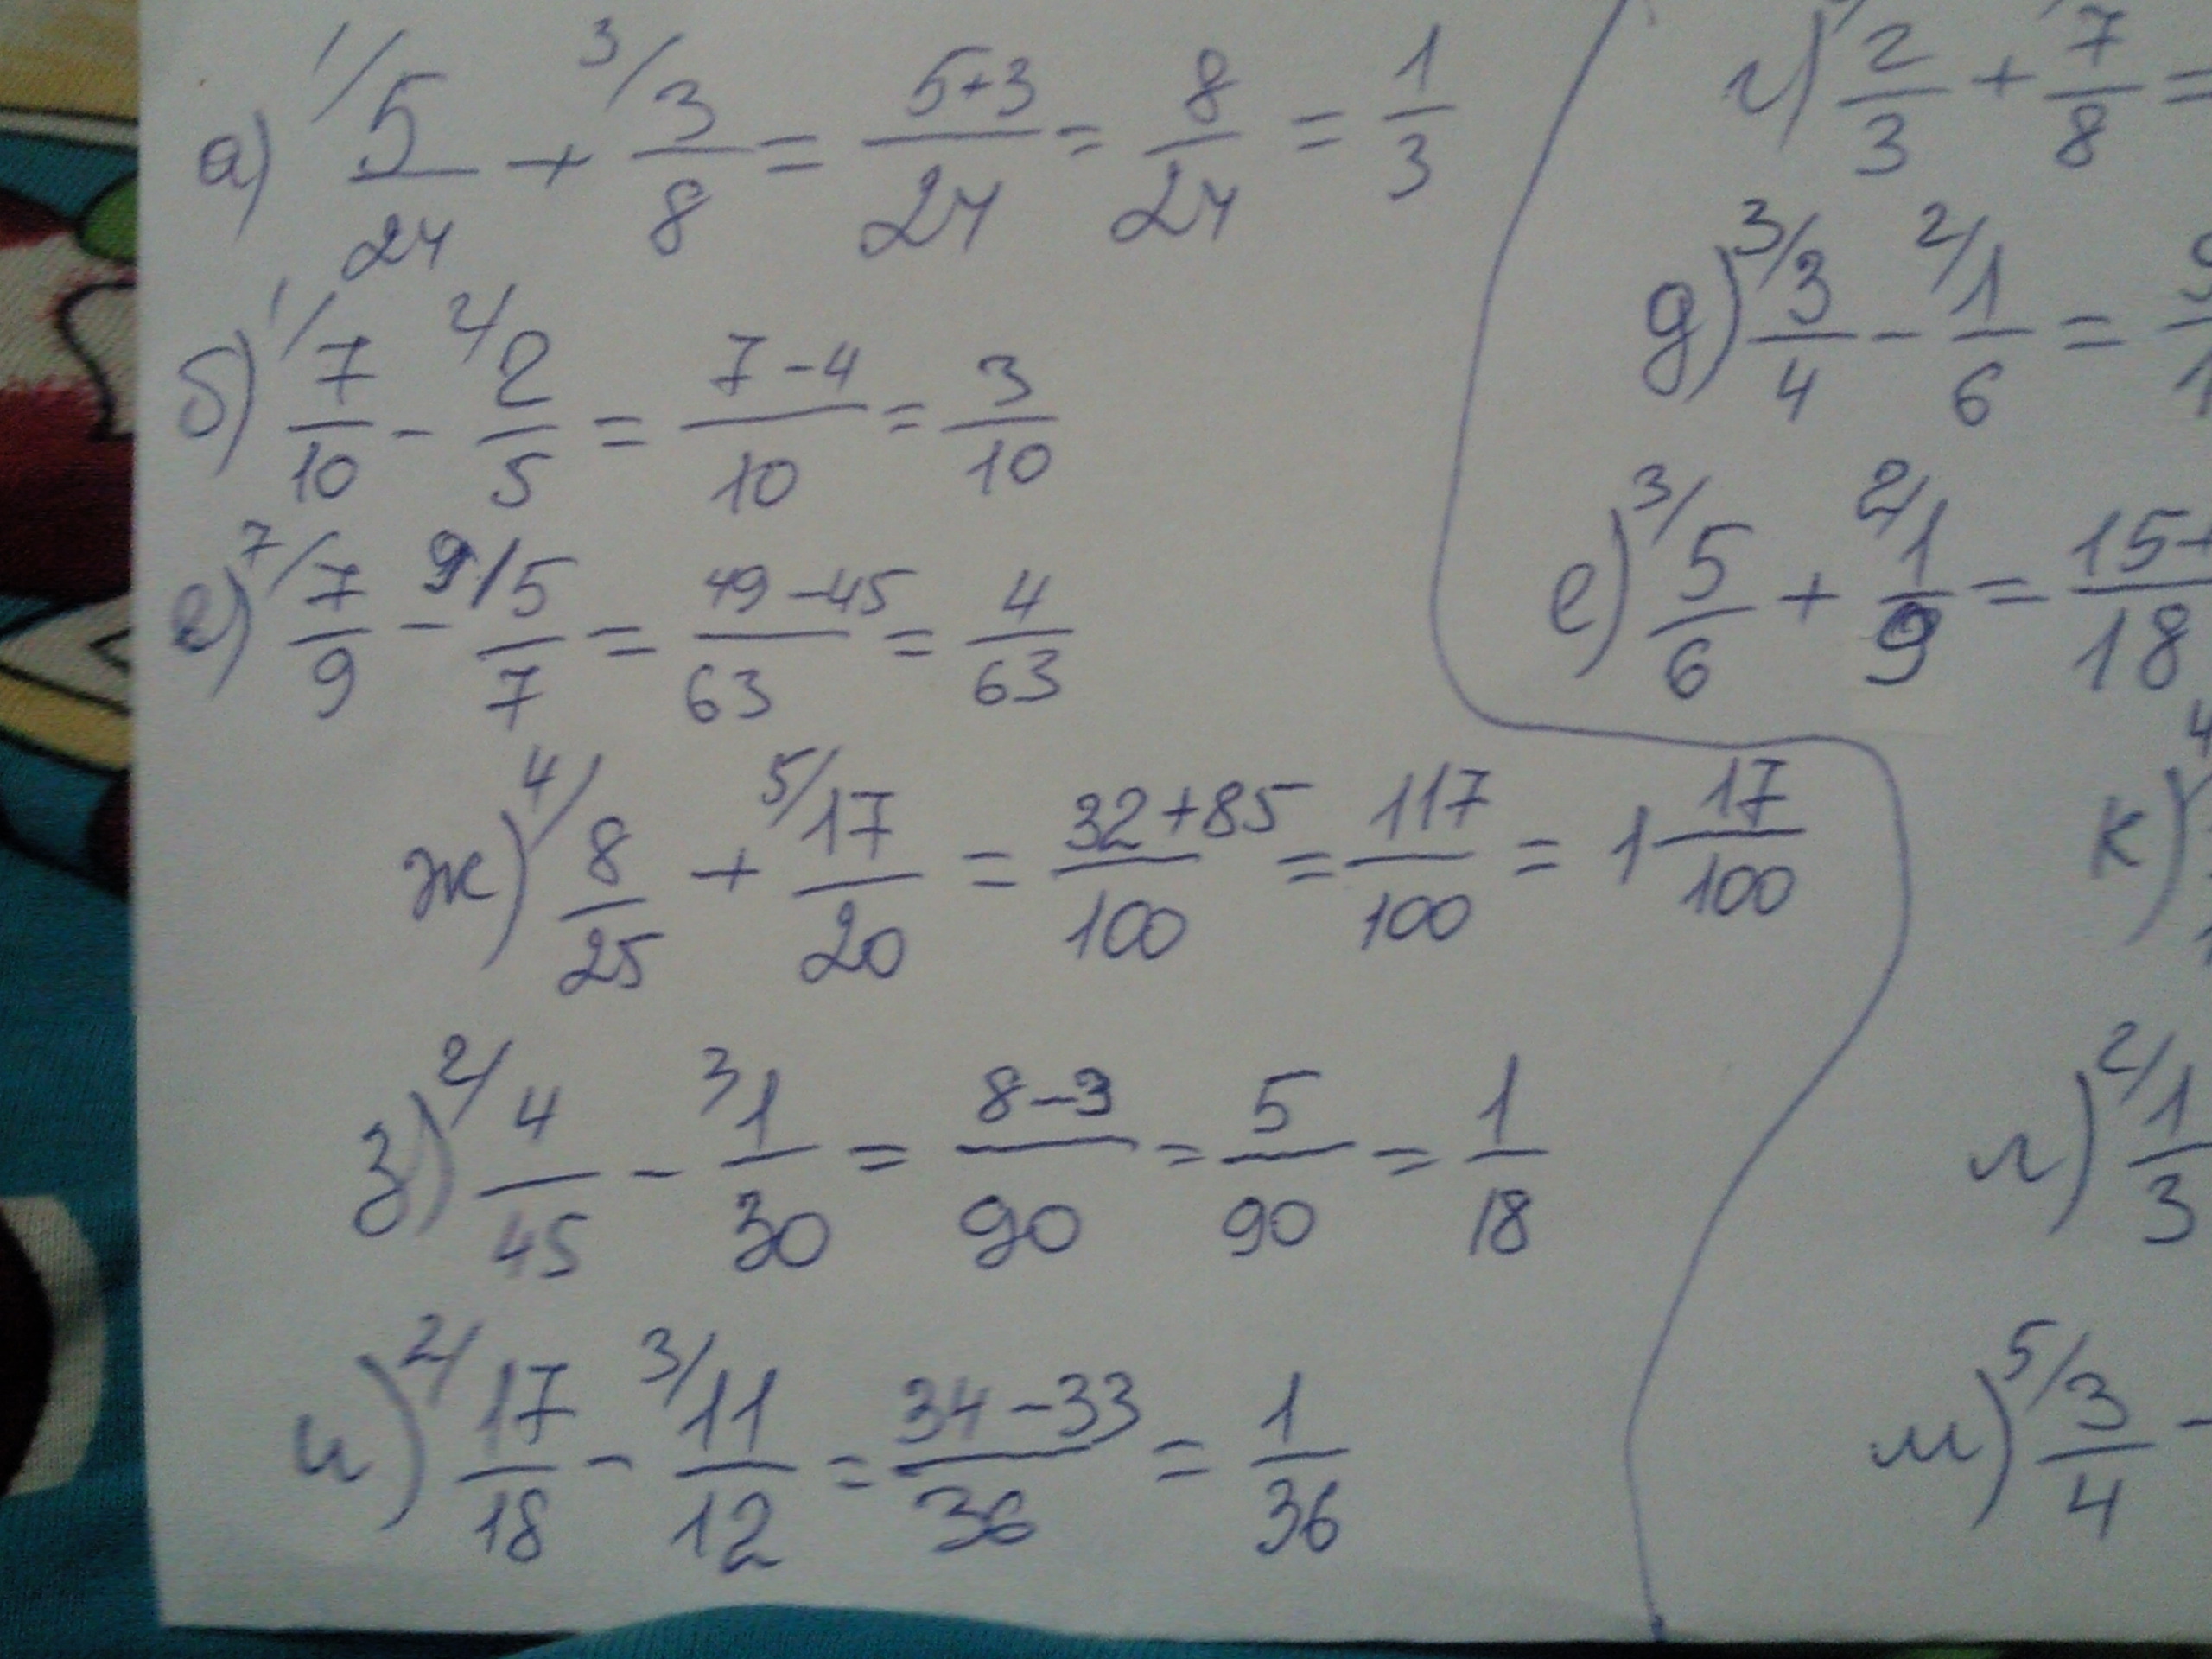 а) 1/ 5/24 + 3/ 3/8 = 5+3/24 = 8/24 = 1/3
б) 1/ 7/10 - 2/ 2/5 = 7-4/10 = 3/10
в) 7/ 7/9 - 9/ 5/7 = 49-45/63 = 4/63
ж) 4/ 8/25 + 5/ 17/20 = 32+85/100 = 117/100 = 1 17/100
з) 2/ 4/45 - 3 1/30 = 8-3/90 = 5/90 = 1/18
и) 2/ 17/18 - 3/ 11/12 = 34-33/36 = 1/36
г) 2/3 + 7/8 =
д) 3/ 3/4 - 2/ 1/6 =
е) 3/ 5/6 + 2/ 1/9 = 15+/18
к)
л) 2/ 1/3
м) 5/ 3/4 -